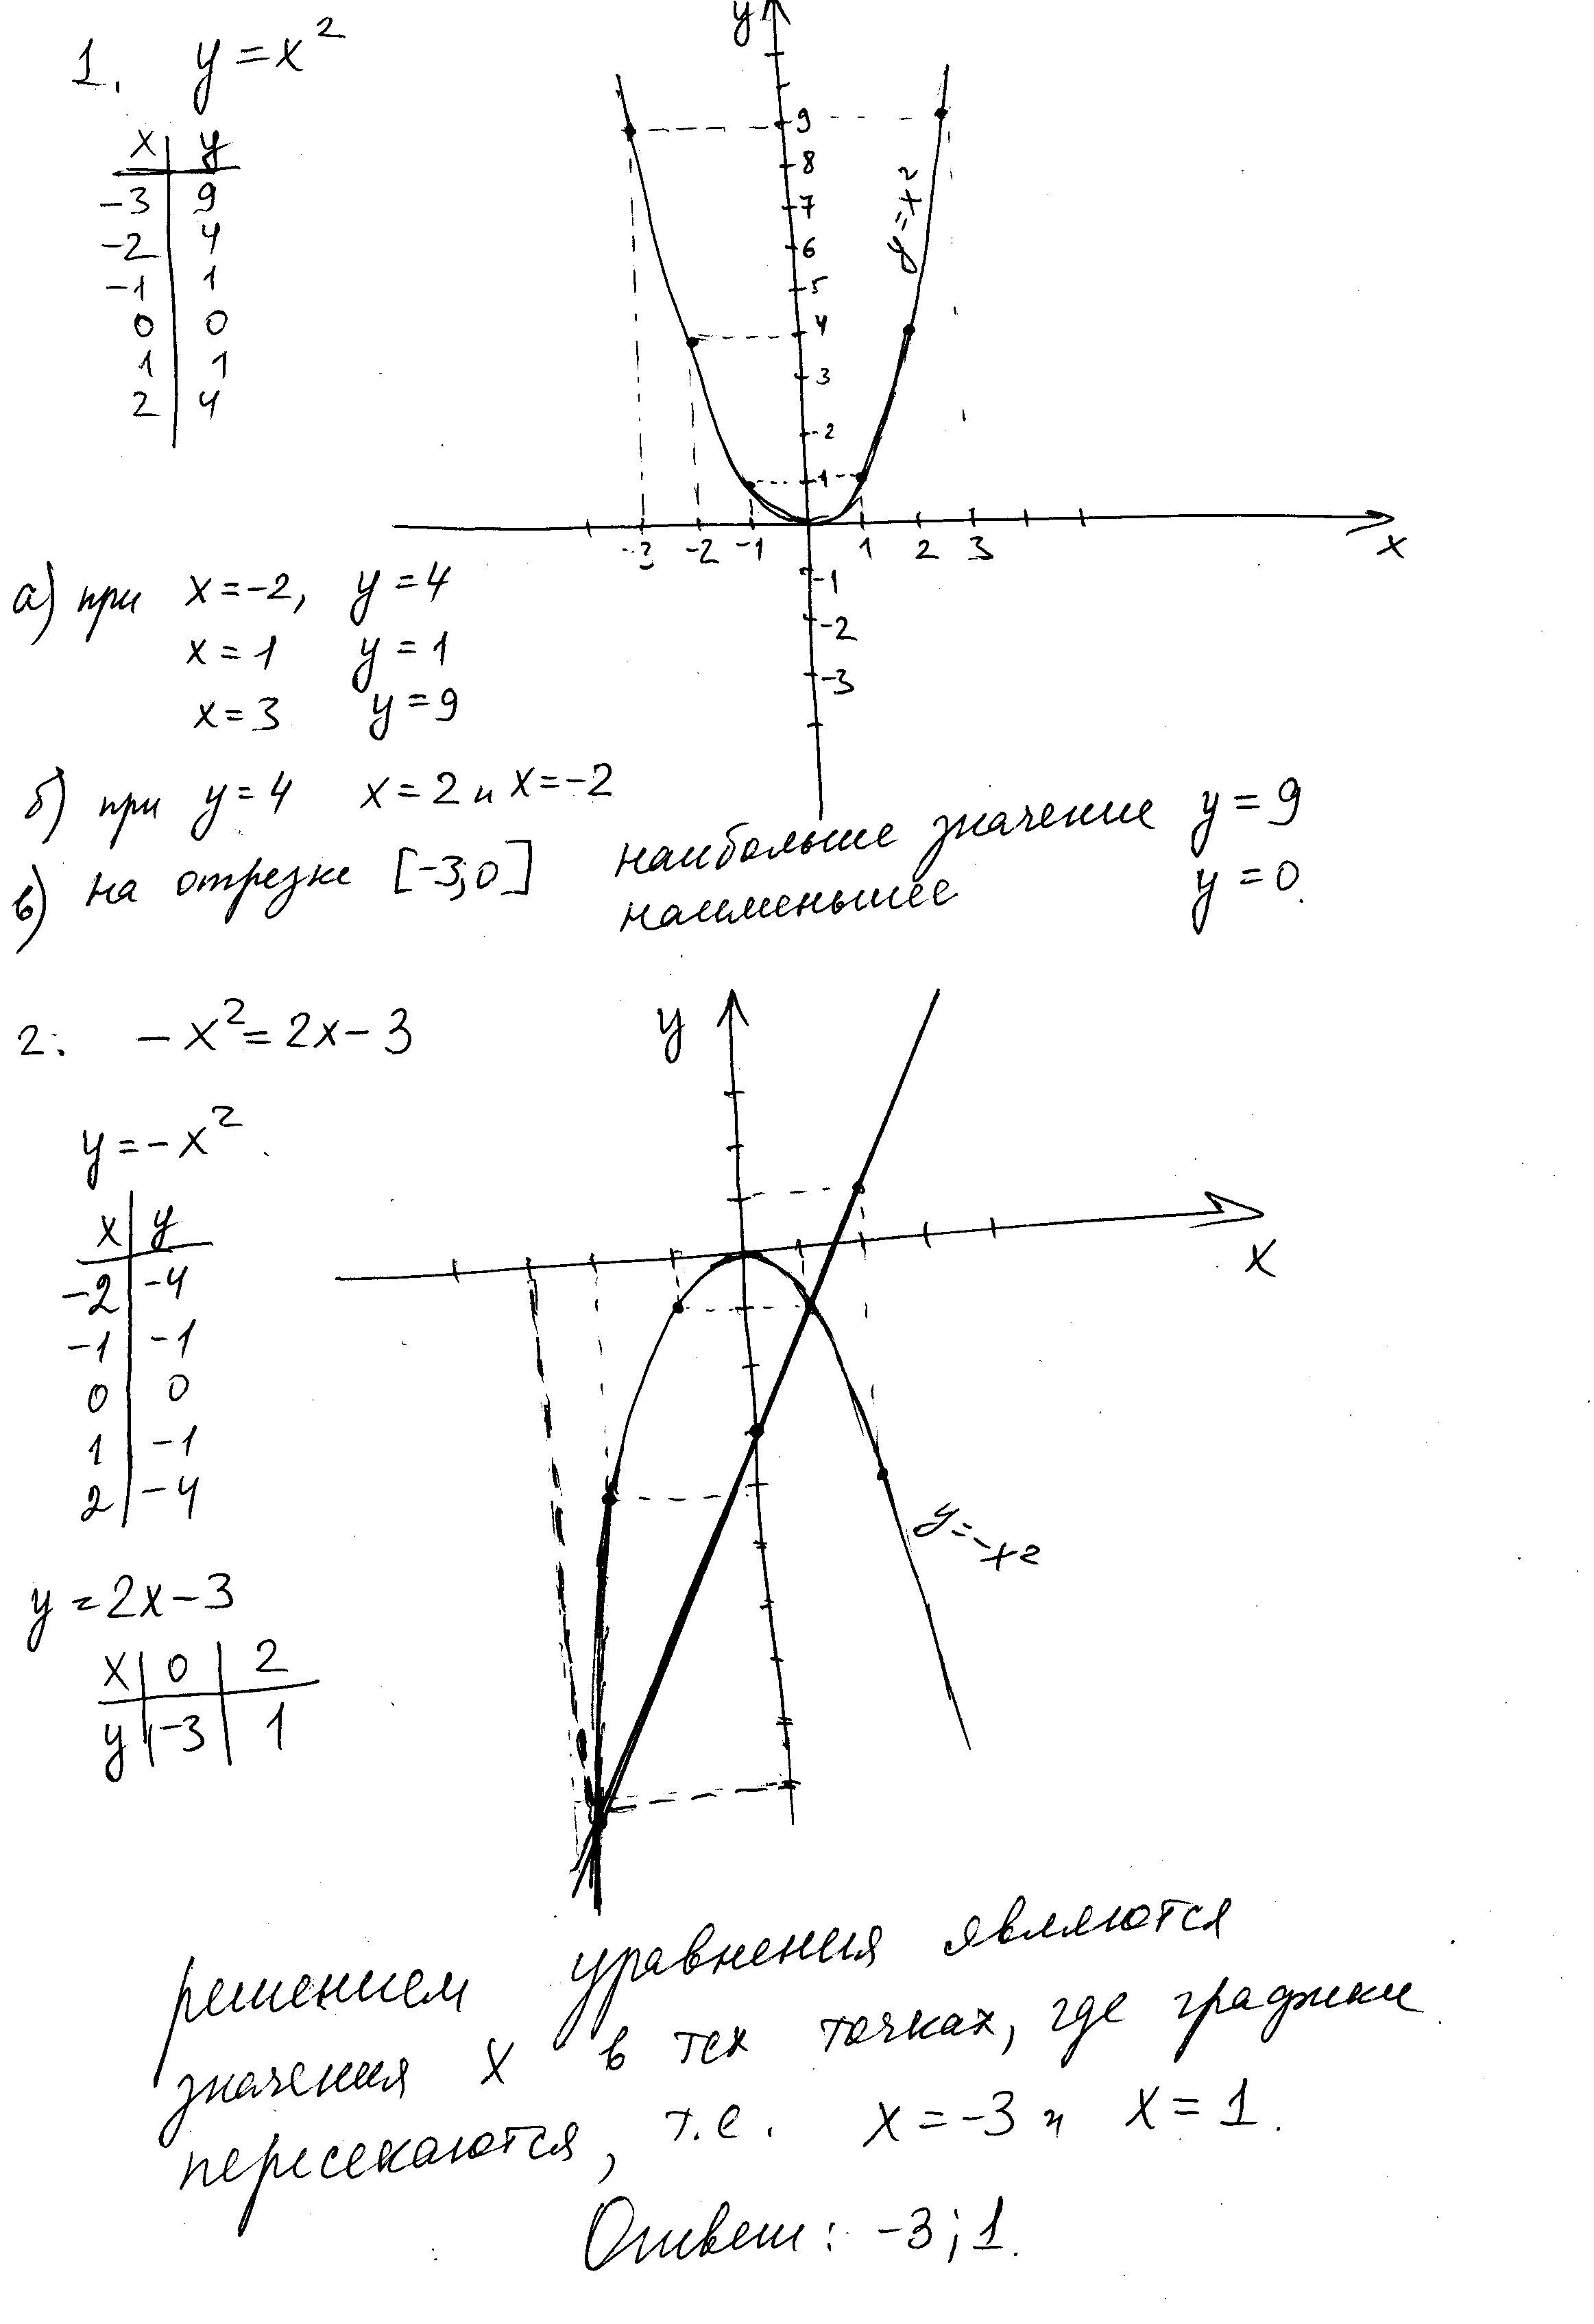 1. y = x²
x y
-3 9
-2 4
-1 1
0 0
1 1
2 4
y
9
8
7
6
5
4
3
2
1
y=x²
-3 -2 -1 1 2 3 x
-1
-2
-3
а) при x=-2, y=4
x=1 y=1
x=3 y=9
б) при y=4 x=2 и x=-2
в) на отрезке [-3;0] наибольше значение y=9
наименьшее y=0.
2. -x²=2x-3
y=-x²
x y
-2 -4
-1 -1
0 0
1 -1
2 -4
y
x
y=-x²
y=2x-3
x 0 2
y -3 1
решением уравнения являются
значения x в тех точках, где графики
пересекаются, т.е. x=-3 и x=1.
Ответ: -3; 1.